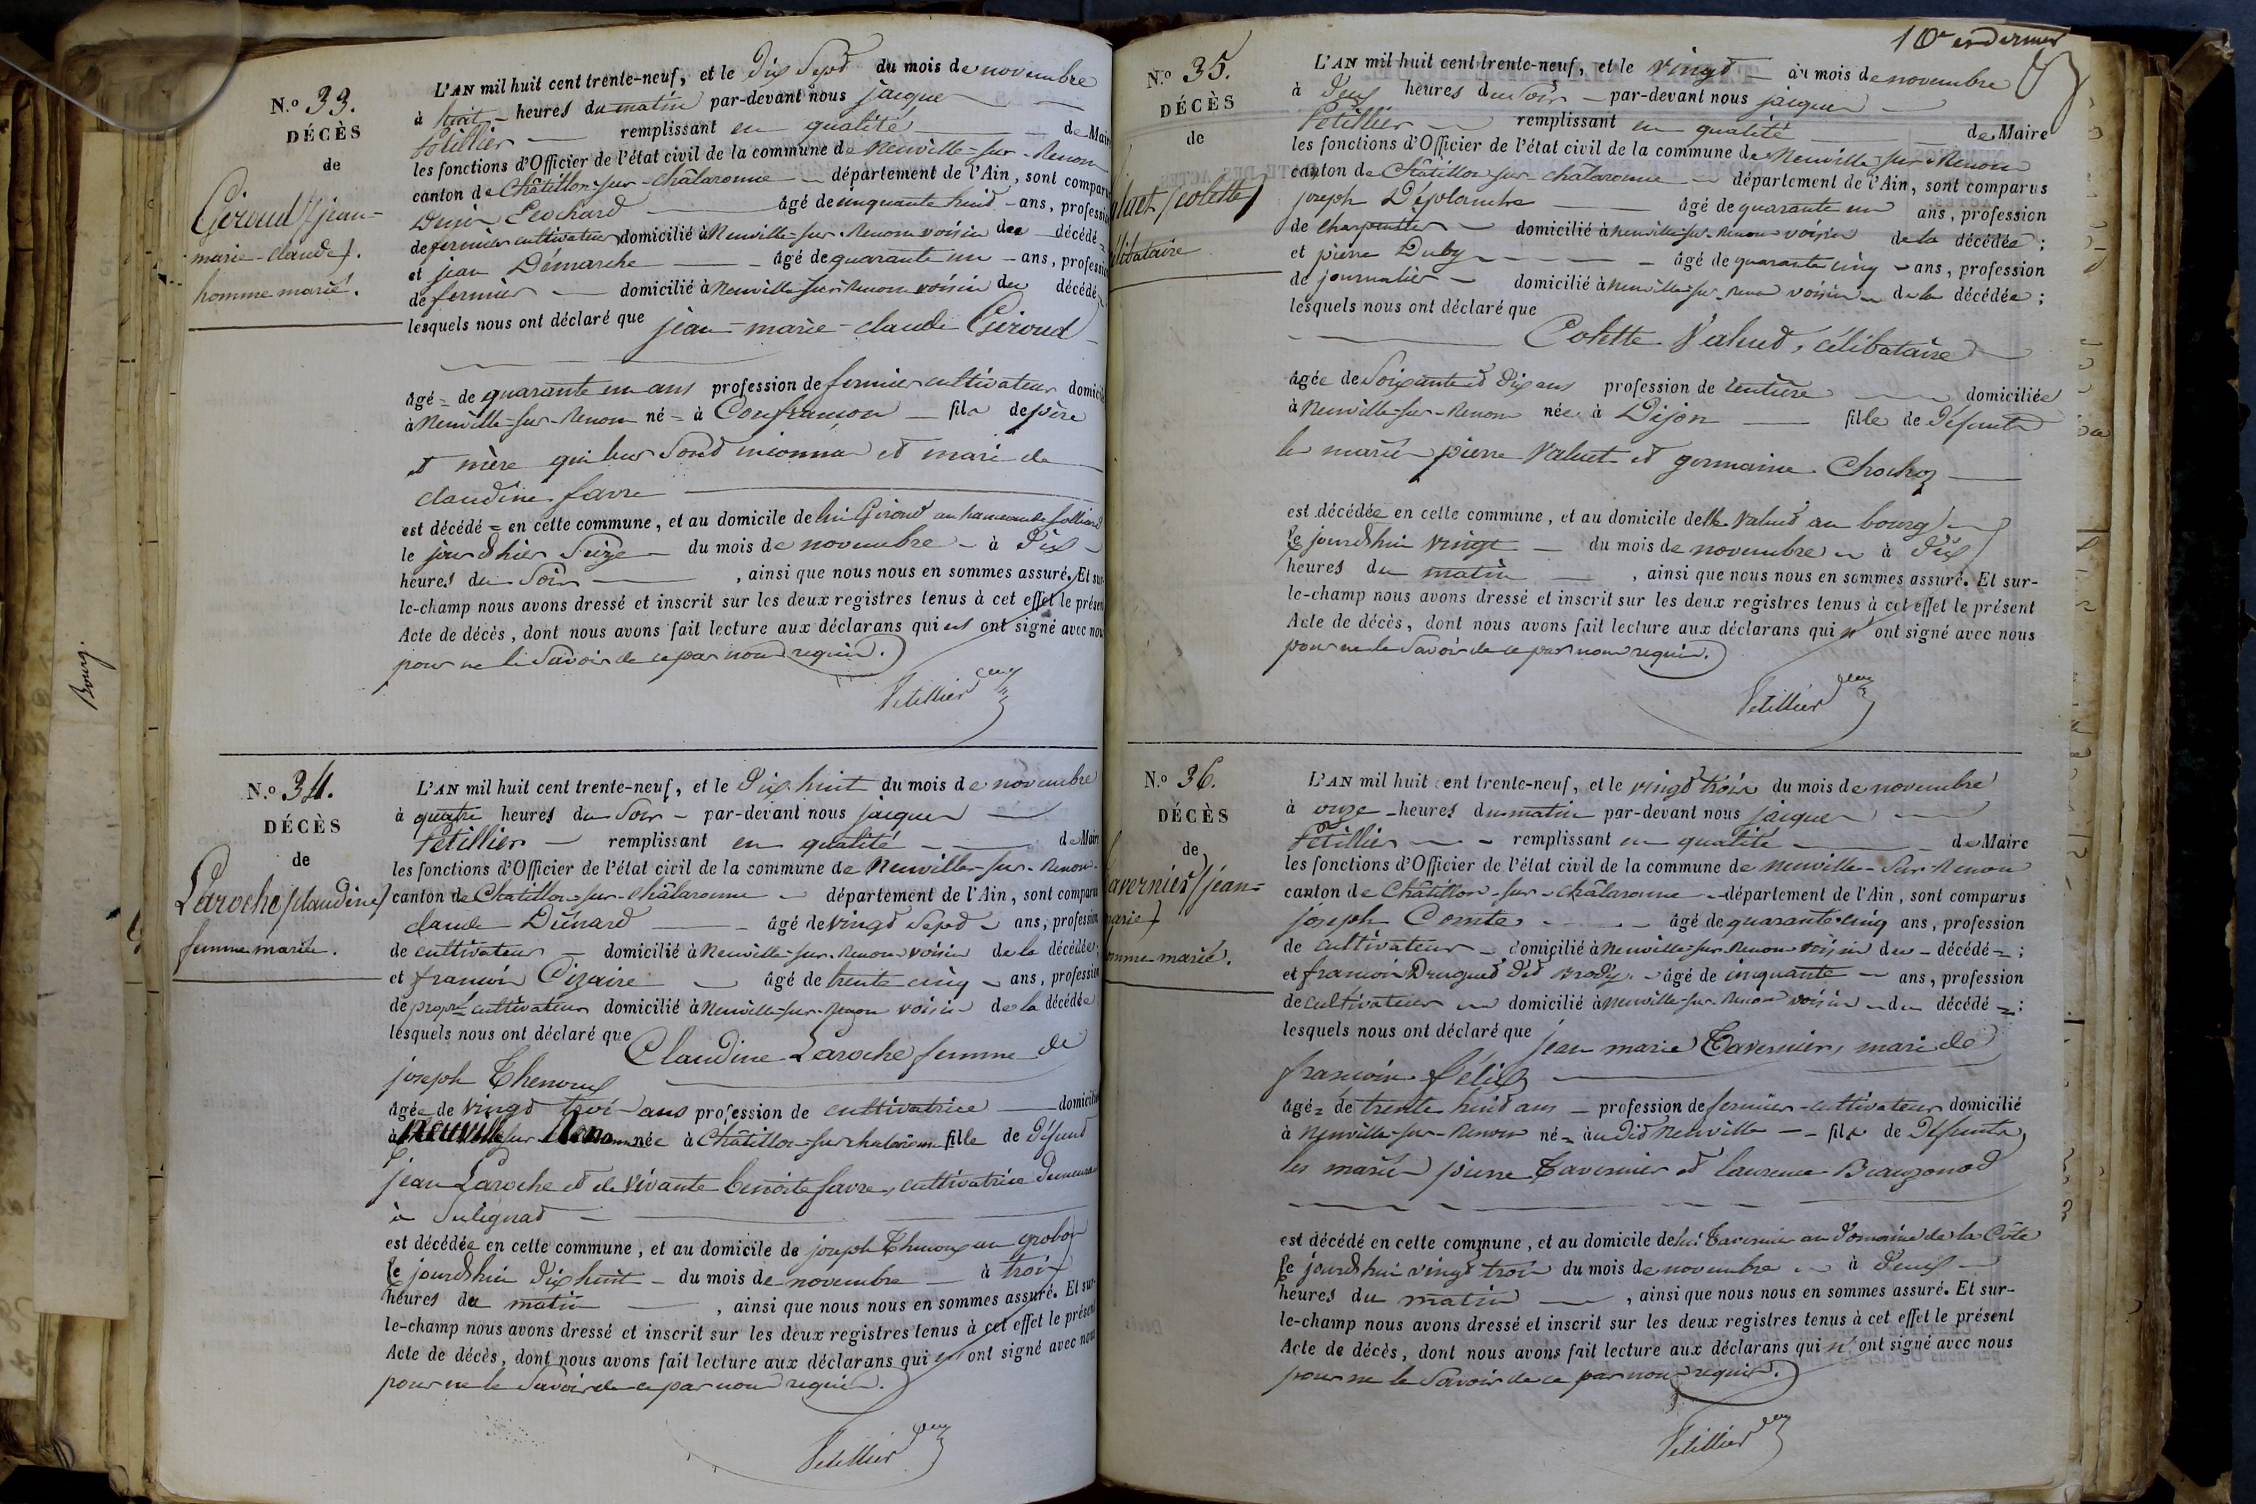 Bourg.
N.º 33.
DÉCÈS
de
Giroud (jean-
marie-claude).
homme marié.
L'AN mil huit cent trente-neuf, et le dix sept du mois de novembre
à huit heures du matin par-devant nous jacques
Petillier remplissant en qualité de Maire
les fonctions d'Officier de l'état civil de la commune de Neuville-sur-Renom
canton de Châtillon-sur-Châlaronne département de l'Ain, sont comparus
âgé de cinquante huit ans, profession
de fermier cultivateur domicilié à Neuville-sur-Renom voisin du décédé
et jean Démarche âgé de quarante un ans, profession
de fermier domicilié à Neuville-sur-Renom voisin du décédé
lesquels nous ont déclaré que jean-marie-claude Giroud
âgé de quarante un ans profession de fermier cultivateur domicilié
à Neuville-sur-Renom né à Confrançon fils de père
et mère qui leur sont inconnus et mari de
claudine favre
est décédé en cette commune, et au domicile de lui Giroud au hameau de
le jour d'hier seize du mois de novembre à dix
heures du soir , ainsi que nous nous en sommes assuré. Et sur-
le-champ nous avons dressé et inscrit sur les deux registres tenus à cet effet le présent
Acte de décès, dont nous avons fait lecture aux déclarans qui n'ont signé avec nous
pour ne le savoir de ce par nous requis.
Petillier
N.º 34.
DÉCÈS
de
Laroche (claudine)
femme mariée.
L'AN mil huit cent trente-neuf, et le dix huit du mois de novembre
à quatre heures du soir par-devant nous jacques
Petillier remplissant en qualité de Maire
les fonctions d'Officier de l'état civil de la commune de Neuville-sur-Renom
canton de Chatillon-sur-châlaronne département de l'Ain, sont comparus
claude Duénard âgé de vingt sept ans, profession
de cultivateur domicilié à Neuville-sur-Renom voisin de la décédée;
et françois Cizaire âgé de trente cinq ans, profession
de propre cultivateur domicilié à Neuville-sur-Renom voisin de la décédée
lesquels nous ont déclaré que Claudine Laroche femme de
joseph Thenoux
âgée de vingt trois ans profession de cultivatrice domiciliée
à Neuville sur Renom née à Châtillon-sur-chalaronne fille de défunt
jean Laroche et de vivante benoite favre, cultivatrice demeurant
à Sulignat
est décédée en cette commune, et au domicile de joseph Thenoux au grobox
le jourd'hui dix huit du mois de novembre à trois
heures du matin , ainsi que nous nous en sommes assuré. Et sur-
le-champ nous avons dressé et inscrit sur les deux registres tenus à cet effet le présent
Acte de décès, dont nous avons fait lecture aux déclarans qui n'ont signé avec nous
pour ne le savoir de ce par nous requis.
Petillier
10e et dernier
N.º 35.
DÉCÈS
de
aluet (colette)
élibataire
L'AN mil huit cent trente-neuf, et le vingt du mois de novembre
à deux heures du soir par-devant nous jacques
Petillier remplissant en qualité de Maire
les fonctions d'Officier de l'état civil de la commune de Neuville-sur-Renom
canton de Châtillon-sur-châlaronne département de l'Ain, sont comparus
joseph Déplanche âgé de quarante un ans, profession
de charpentier domicilié à Neuville-sur-Renom voisin de la décédée;
et pierre Duby âgé de quarante cinq ans, profession
de journalier domicilié à Neuville-sur-Renom voisin de la décédée;
lesquels nous ont déclaré que
Colette Valuet, célibataire
âgée de soixante et dix ans profession de rentière domiciliée
à Neuville-sur-Renom née à Dijon fille de défunts
les mariés pierre Valuet et germaine
est décédée en cette commune, et au domicile de lle Valuet au bourg
le jourd'hui vingt du mois de novembre à dix
heures du matin , ainsi que nous nous en sommes assuré. Et sur-
le-champ nous avons dressé et inscrit sur les deux registres tenus à cet effet le présent
Acte de décès, dont nous avons fait lecture aux déclarans qui n'ont signé avec nous
pour ne le savoir de ce par nous requis.
Petillier
N.º 36.
DÉCÈS
de
avernier (jean-
marie)
omme marié.
L'AN mil huit cent trente-neuf, et le vingt trois du mois de novembre
à onze heures du matin par-devant nous jacques
Petillier remplissant en qualité de Maire
les fonctions d'Officier de l'état civil de la commune de neuville-sur-Renom
canton de Châtillon-sur-châlaronne département de l'Ain, sont comparus
joseph Comte âgé de quarante cinq ans, profession
de cultivateur domicilié à Neuville-sur-Renom voisin du décédé;
et françois Druguet dit brody âgé de cinquante ans, profession
de cultivateur domicilié à Neuville-sur-Renom voisin du décédé;
lesquels nous ont déclaré que jean marie Tavernier, mari de
françoise félix
âgé de trente huit ans profession de fermier-cultivateur domicilié
à Neuville-sur-Renom né au dit Neuville fils de défunts
les mariés pierre Tavernier et laurence
est décédé en cette commune, et au domicile de lui Tavernier au domaine de la Côte
le jourd'hui vingt trois du mois de novembre à deux
heures du matin , ainsi que nous nous en sommes assuré. Et sur-
le-champ nous avons dressé et inscrit sur les deux registres tenus à cet effet le présent
Acte de décès, dont nous avons fait lecture aux déclarans qui n'ont signé avec nous
pour ne le savoir de ce par nous requis.
Petillier